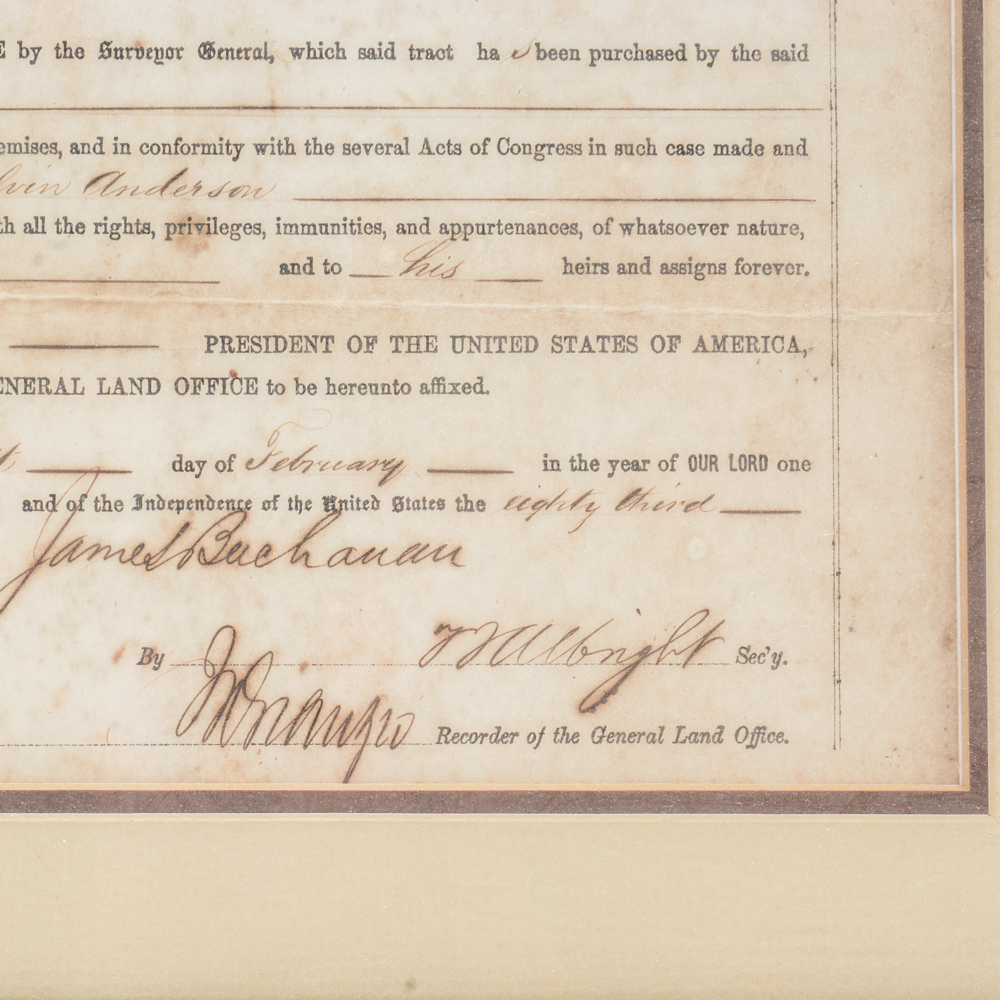 E by the Surveyor General, which said tract ha s been purchased by the said
emises, and in conformity with the several Acts of Congress in such case made and
lvin Anderson
th all the rights, privileges, immunities, and appurtenances, of whatsoever nature,
and to his heirs and assigns forever.
PRESIDENT OF THE UNITED STATES OF AMERICA,
ENERAL LAND OFFICE to be hereunto affixed.
day of February in the year of OUR LORD one
and of the Independence of the United States the eighty third
James Buchanan
By Albright Sec'y.
Recorder of the General Land Office.